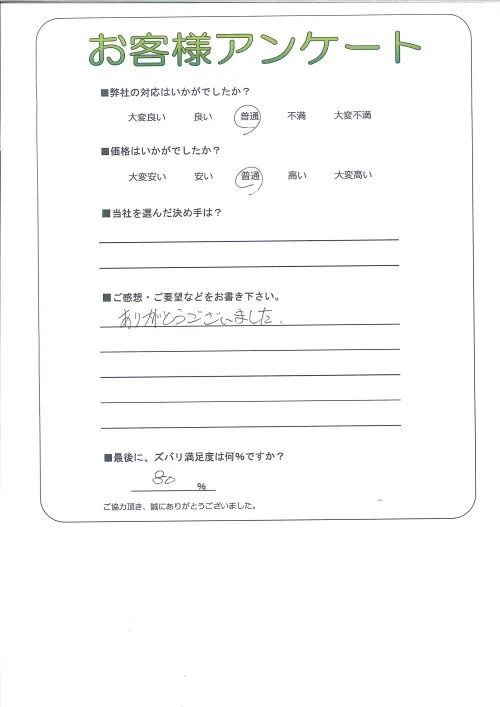 お客様アンケート
■弊社の対応はいかがでしたか？
大変良い 良い 普通 不満 大変不満
■価格はいかがでしたか？
大変安い 安い 普通 高い 大変高い
■当社を選んだ決め手は？
■ご感想・ご要望などをお書き下さい。
ありがとうございました.
■最後に、ズバリ満足度は何％ですか？
80 ％
ご協力頂き、誠にありがとうございました。